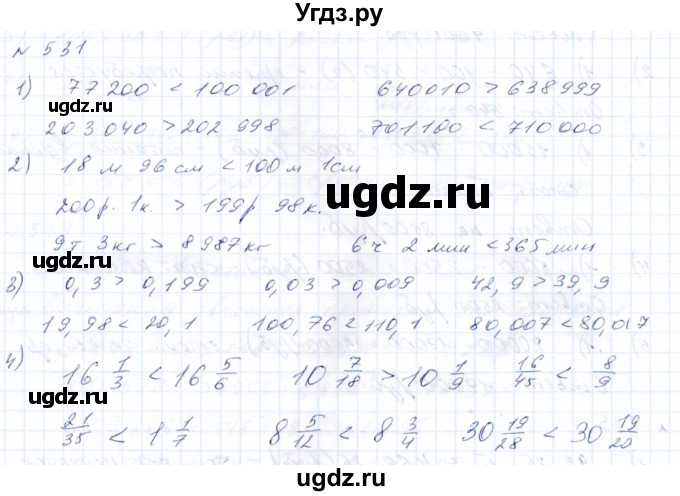 Угдз.ру
N 531
1) 77 200 < 100 001 640010 > 638 999
угдз.ru
203 040 > 202 998 701 100 < 710 000
2) 18 м 96 см < 100 м 1 см
ugdz.ru
200 р. 1 к. > 199 р 98 к.
9 т 3 кг > 8 987 кг 6 ч 2 мин < 365 мин
ugdz.ru
3) 0,3 > 0,199 0,03 > 0,009 42,9 > 39,9
19,98 < 20,1 100,76 < 110,1 80,007 < 80,017
4) 16 1/3 < 16 5/6 10 7/18 > 10 1/9 16/45 < 8/9
ugdz.ru
21/35 < 1 1/7 8 5/12 < 8 3/4 30 19/28 < 30 19/20